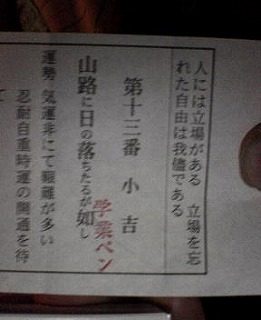 人には立場がある　立場を忘
れた自由は我儘である
第十三番　小吉
山路に日の落ちたるが如し
学業ペン
運勢　気運非にて艱難が多い
忍耐自重時運の開通を待
て